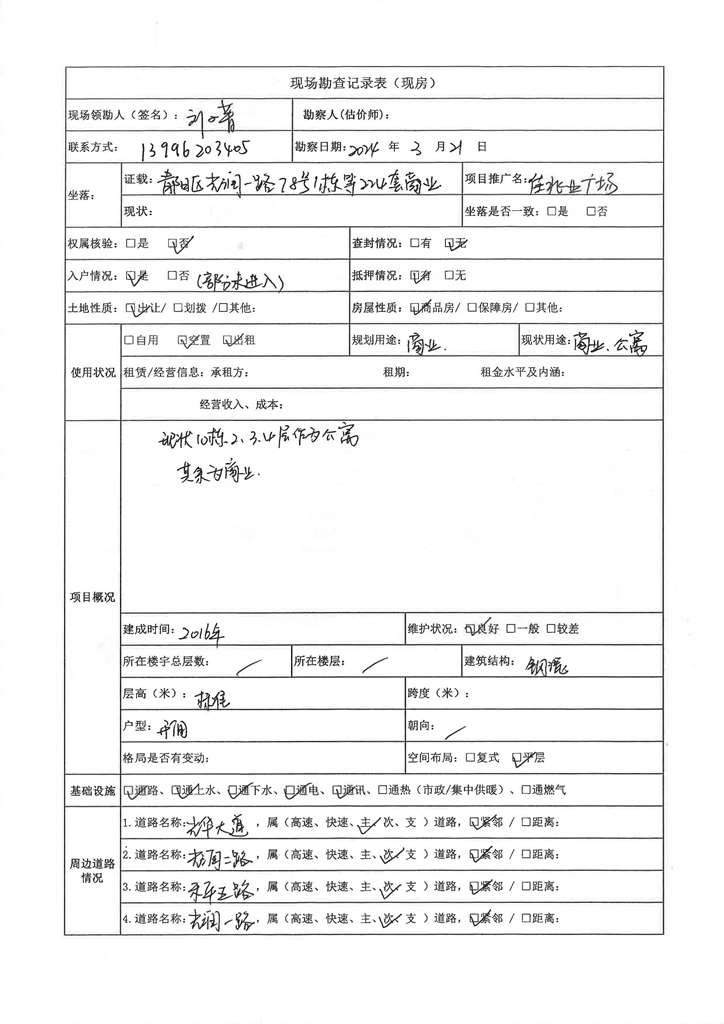 现场勘查记录表（现房）
现场领勘人（签名）： 刘 勘察人(估价师)：
联系方式： 13996203405 勘察日期：2024 年 3 月 21 日
坐落： 证载： 区光润一路78号1栋等224套商业 项目推广名：佳兆业广场
现状： 坐落是否一致：□是 □否
权属核验：□是 ☑否 查封情况：□有 ☑无
入户情况：☑是 □否 (部分未进入) 抵押情况：☑有 □无
土地性质：☑出让/ □划拨 /□其他： 房屋性质：☑商品房/ □保障房/ □其他：
使用状况 □自用 ☑空置 ☑出租 规划用途：商业. 现状用途：商业、公寓
租赁/经营信息：承租方： 租期： 租金水平及内涵：
经营收入、成本：
项目概况
现状10栋2、3、4层作为公寓
其余为商业.
建成时间：2016年 维护状况：☑良好 □一般 □较差
所在楼宇总层数： / 所在楼层： / 建筑结构： 钢混
层高（米）：标准 跨度（米）：
户型：开间 朝向： /
格局是否有变动： 空间布局：□复式 ☑平层
基础设施 ☑通路、☑通上水、☑通下水、☑通电、☑通讯、□通热（市政/集中供暖）、□通燃气
周边道路情况
1.道路名称：光华大道，属（高速、快速、主✓、次、支 ）道路，☑紧邻 / □距离：
2.道路名称：光润二路，属（高速、快速、主、次✓、支 ）道路，☑紧邻 / □距离：
3.道路名称：五路，属（高速、快速、主、次✓、支 ）道路，☑紧邻 / □距离：
4.道路名称：光润一路，属（高速、快速、主、次✓、支 ）道路，☑紧邻 / □距离：